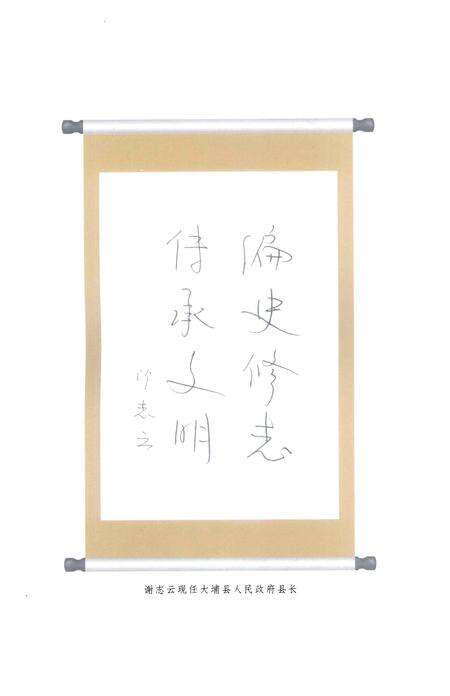 编史修志
传承文明
谢志云
谢志云现任大埔县人民政府县长